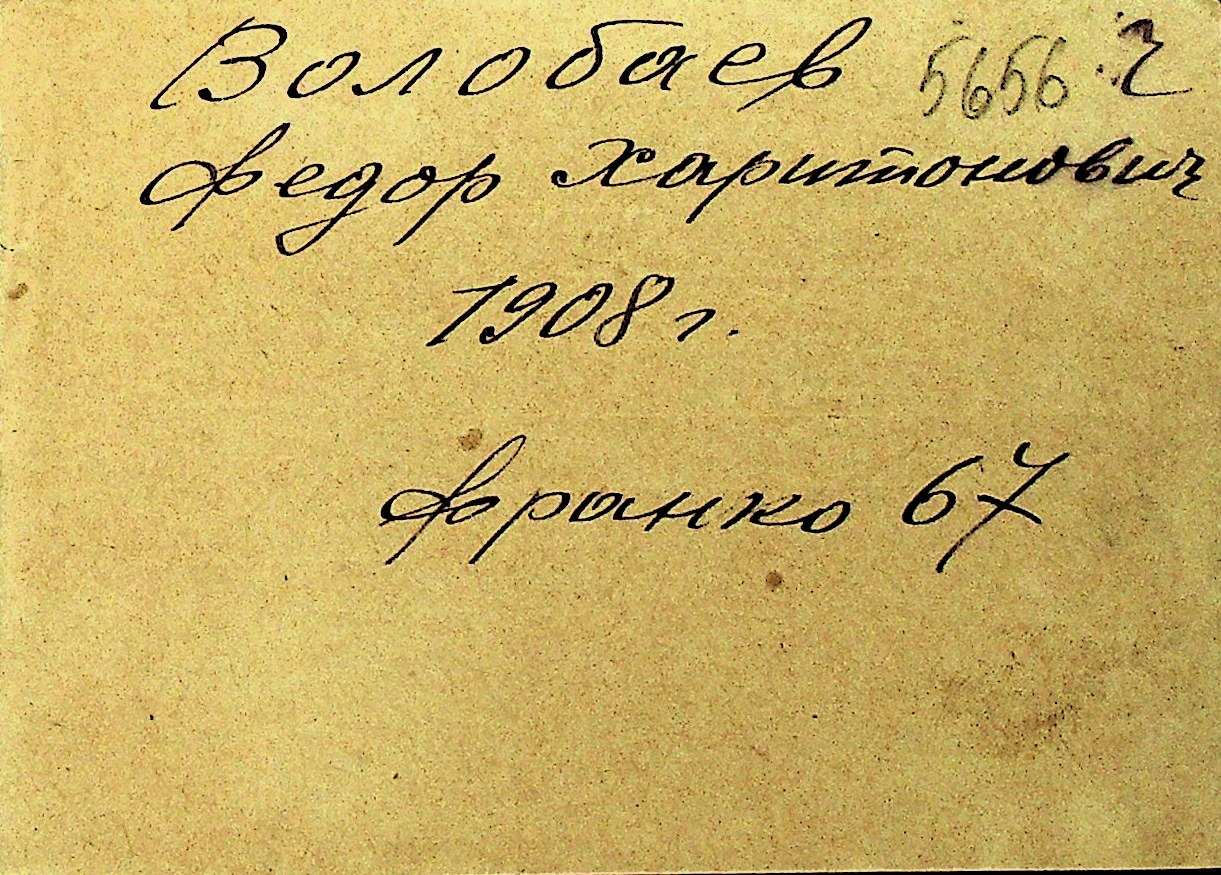 Волобаев 5656 2
Федор Харитонович
1908 г.
Франко 67